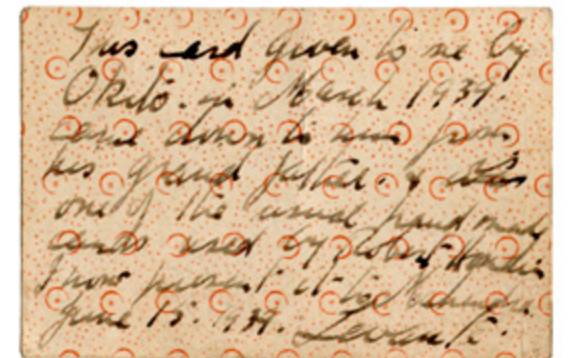 This card given to me by
Okito. in March 1939.
came down to him from
his grand father. & was
one of the usual hand made
cards used by Robert Houdin
I now present it to
June 15. 1939. Levante.